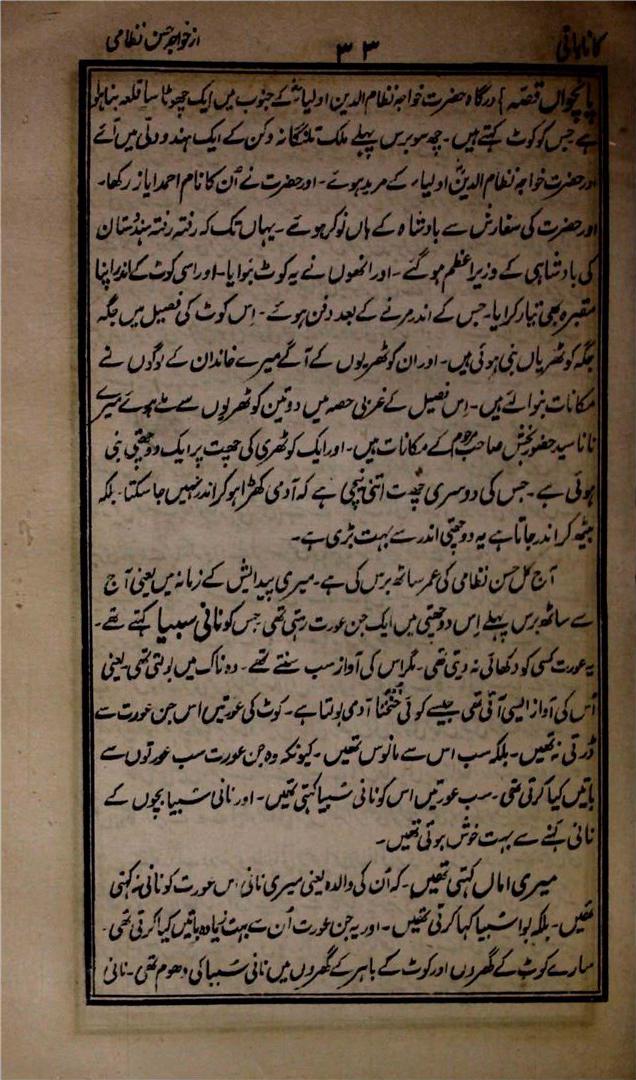 کانا باتی ۳۳ از خواجہ حسن نظامی
پانچواں قصّہ } درگاہ حضرت خواجہ نظام الدین اولیاءؒ کے جنوب میں ایک چھوٹا سا قلعہ بنا ہوا
ہے جس کو کوٹ کہتے ہیں۔ چھ سو برس پہلے ملک تلنگانہ دکن کے ایک ہندو دلّی میں آئے
اور حضرت خواجہ نظام الدینؒ اولیاء کے مرید ہوئے۔ اور حضرت نے اُن کا نام احمد ایاز رکھا۔
اور حضرت کی سفارش سے بادشاہ کے ہاں نوکر ہوئے۔ یہاں تک کہ رفتہ رفتہ ہندُستان
کی بادشاہی کے وزیر اعظم ہو گئے۔ اور انھوں نے یہ کوٹ بنوایا۔ اور اسی کوٹ کے اندر اپنا
مقبرہ بھی تیار کرایا۔ جس کے اندر مرنے کے بعد دفن ہوئے۔ اِس کوٹ کی فصیل میں جگہ
جگہ کوٹھریاں بنی ہوئی ہیں۔ اور ان کوٹھریوں کے آگے میرے خاندان کے لوگوں نے
مکانات بنوائے ہیں۔ اِس فصیل کے غربی حصہ میں دو تین کوٹھریوں سے ملے ہوئے میرے
نانا سید حضور بخش صاحب مرحوم کے مکانات ہیں۔ اور ایک کوٹھری کی چھت پر ایک دوچھتی بنی
ہوئی ہے۔ جس کی دوسری چھت اتنی نیچی ہے کہ آدمی کھڑا ہو کر اندر نہیں جا سکتا۔ بلکہ
بیٹھ کر اندر جاتا ہے یہ دوچھتی اندر سے بہت بڑی ہے۔
آج کل حسن نظامی کی عمر ساٹھ برس کی ہے۔ میری پیدایش کے زمانہ میں یعنی آج
سے ساٹھ برس پہلے اِس دوچھتی میں ایک جن عورت رہتی تھی جس کو نانی سبیا کہتے تھے۔
یہ عورت کسی کو دکھائی نہ دیتی تھی۔ مگر اس کی آواز سب سنتے تھے۔ وہ ناک میں بولتی تھی۔ یعنی
اُس کی آواز ایسی آتی تھی جیسے کوئی خُنخُنا آدمی بولتا ہے۔ کوٹ کی عورتیں اس جن عورت سے
ڈرتی نہ تھیں۔ بلکہ سب اس سے مانوس تھیں۔ کیونکہ وہ جن عورت سب عورتوں سے
باتیں کیا کرتی تھی۔ سب عورتیں اس کو نانی سَبیا کہتی تھیں۔ اور نانی سَبیا بچوں کے
نانی کہنے سے بہت خوش ہوتی تھیں۔
میری اماں کہتی تھیں۔ کہ اُن کی والدہ یعنی میری نانی اس عورت کو نانی نہ کہتی
تھیں۔ بلکہ بوا سَبیا کہا کرتی تھیں۔ اور یہ جن عورت اُن سے بہت زیادہ باتیں کیا کرتی تھی۔
سارے کوٹ کے گھروں اور کوٹ کے باہر کے گھروں میں نانی سَبیا کی دھوم تھی۔ نانی